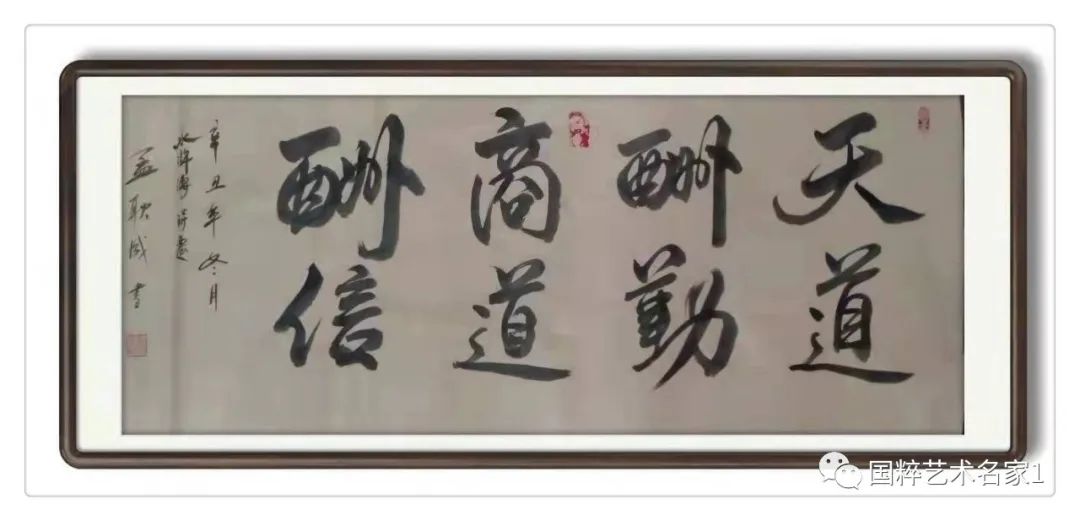 天道
酬勤
商道
酬信
辛丑年冬月
孟耿成書
国粹艺术名家1